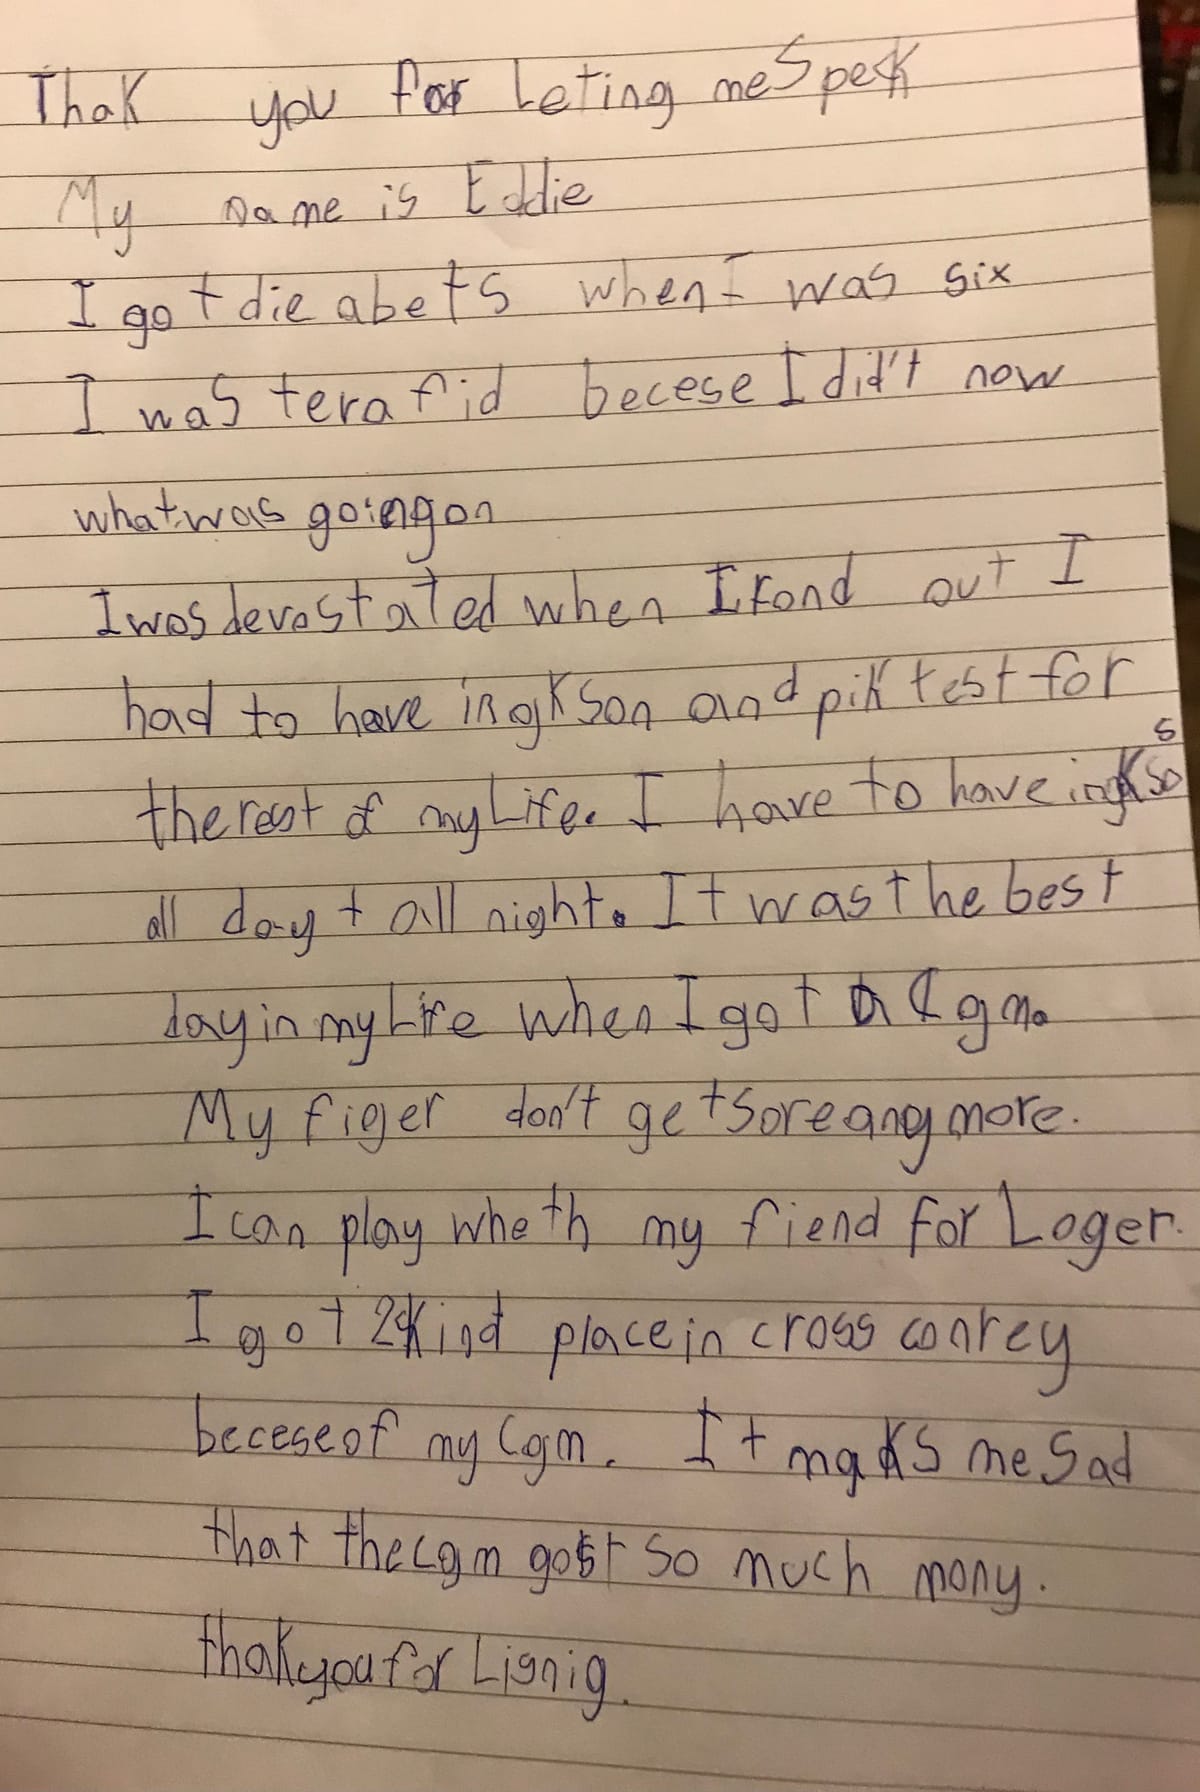 Thak you for Leting me Spek
My name is Eddie
I got die abets when I was six
I was terafid becese I did't now
what was going on
I was devastated when I fond out I
had to have ingkson and pik test for
the rest of my Life. I have to have ingksos
all day + all night. It was the best
day in my Life when I got a Cgm.
My figer don't get Sore any more.
I can play wheth my fiend for Loger.
I got 2kind place in cross conrey
becese of my Cgm. It maks me Sad
that the cgm gost so much mony.
thak you for Lignig.